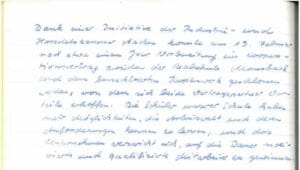 Dank einer Initiative der Industrie- und
Handelskammer Aachen konnte am 19. Februar
nach etwa einem Jahr Vorbereitung ein
zwischen der Realschule
und dem geschlossen
werden, von dem sich beide Vertragspartner Vor-
teile erhoffen. Die Schüler unserer Schule haben
mehr Möglichkeiten, die Arbeitswelt und deren
Anforderungen kennen zu lernen, und das
Unternehmen verspricht sich, auf die Dauer moti-
vierte und qualifizierte Mitarbeiter zu gewinnen